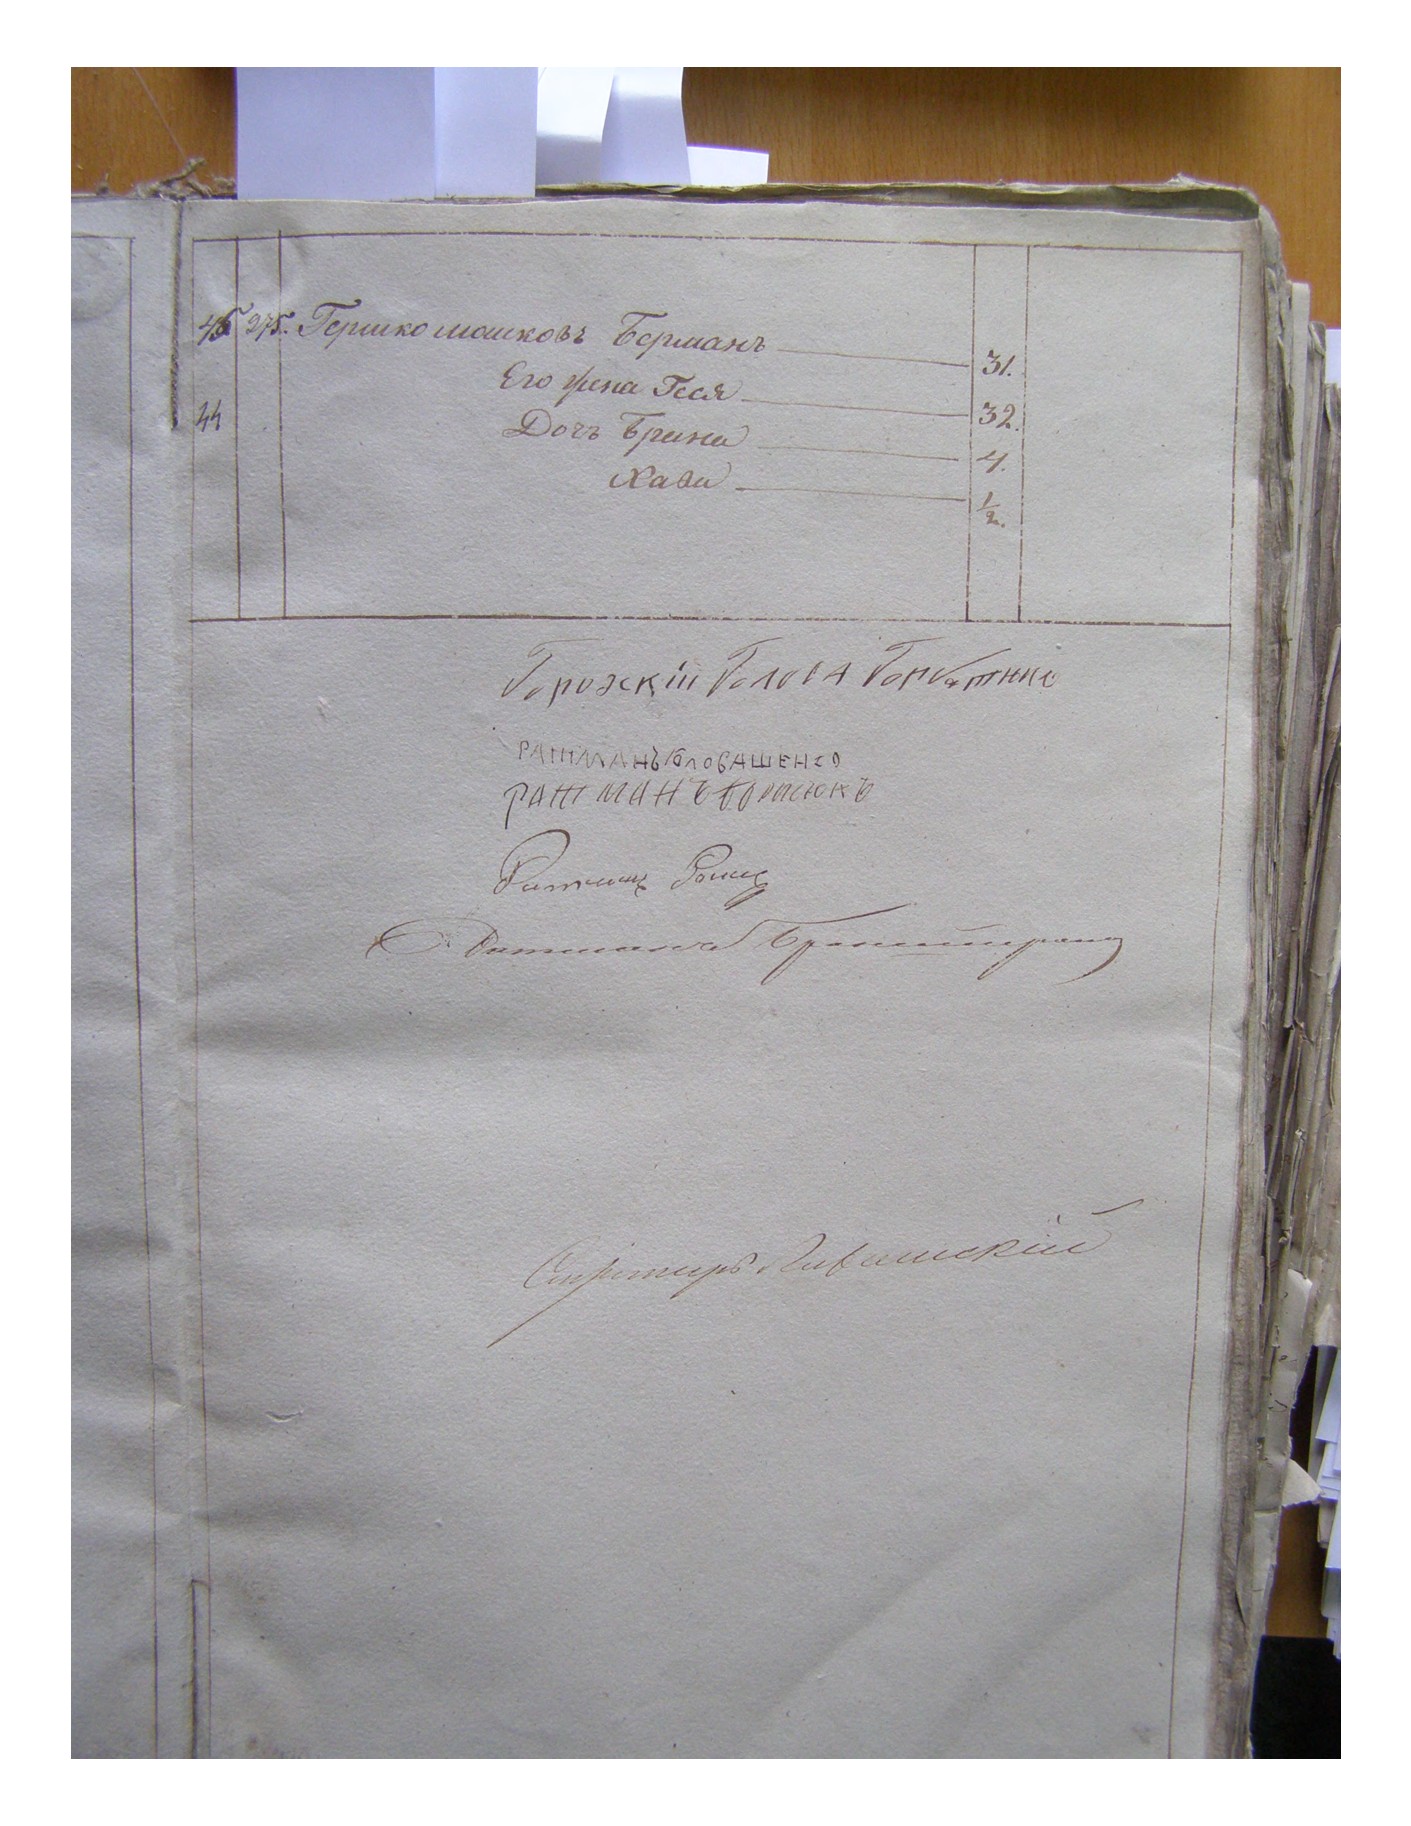 45 275. Гершко Мошковъ Берманъ 31.
Его жена Геся 32.
44 Дочь Брана 4.
Хава 1/2.
Городскій Голова Горбатенко
РАТМАНЪ Головашенко
РАТМАНЪ Борисюкъ
Ратманъ
Ратманъ Бронштейн
Секретарь